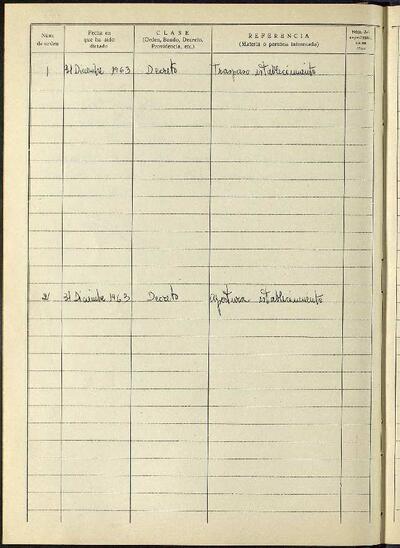 Núm. de orden
Fecha en que ha sido dictado
CLASE
(Orden, Bando, Decreto, Providencia, etc.)
REFERENCIA
(Materia o persona interesada)
1 31 Diciembre 1963 Decreto Traspaso establecimiento
2 31 Diciembre 1963 Decreto apertura establecimiento